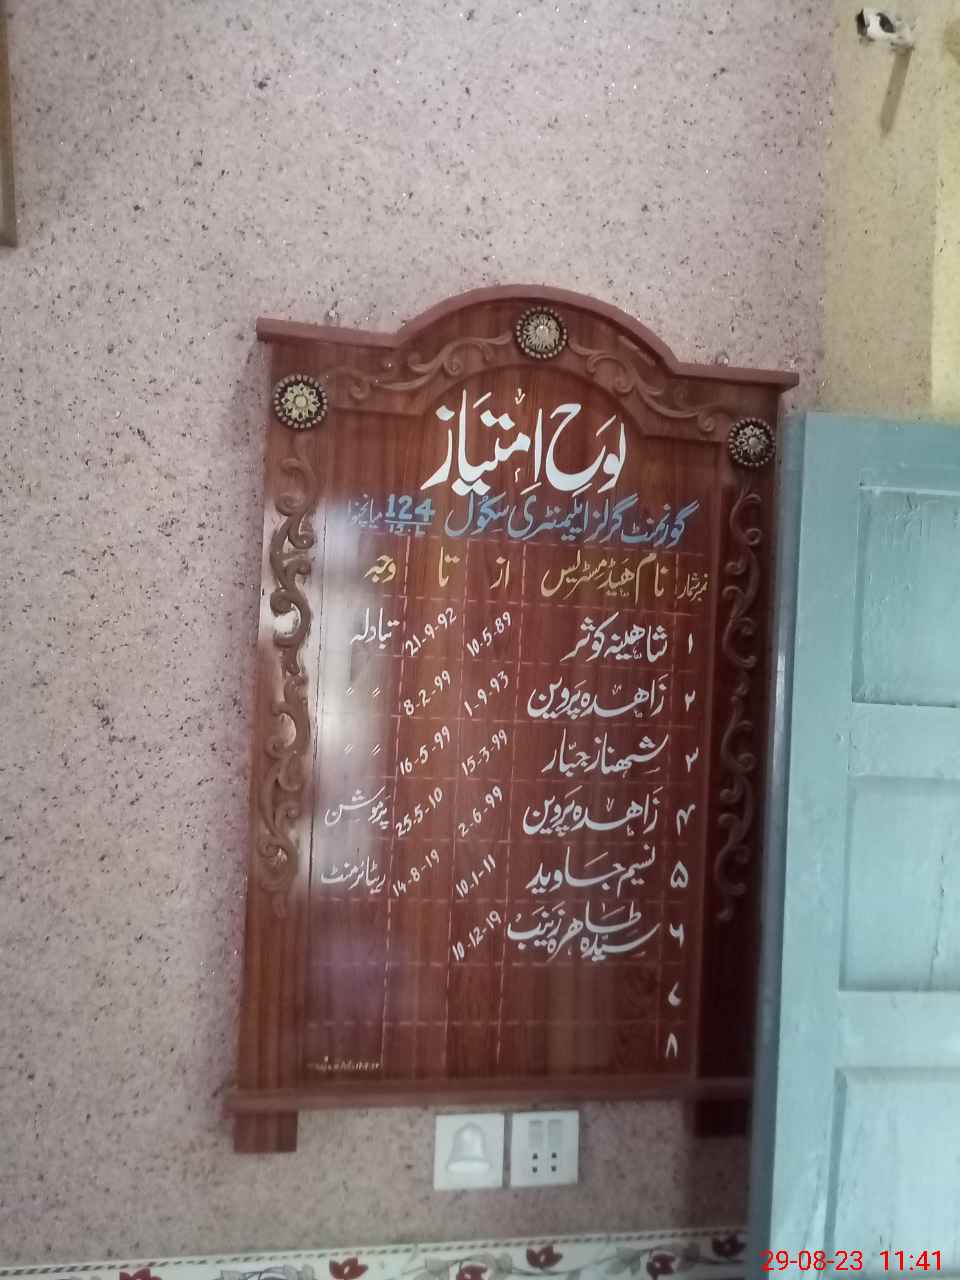 لوح امتیاز
گورنمنٹ گرلز ایلیمنٹری سکول 124/15-L میانچنوں
نمبر شمار نام ھیڈ مسٹریس از تا وجہ
۱ شاھینہ کوثر 10-5-89 21-9-92 تبادلہ
۲ زاھدہ پروین 1-9-93 8-2-99 〃 〃
۳ شہناز جبّار 15-3-99 16-5-99 〃 〃
۴ زاھدہ پروین 2-6-99 25-5-10 پرموشن
۵ نسیم جاوید 10-1-11 14-8-19 ریٹائرمنٹ
۶ سیّدہ طاہرہ زینب 10-12-19
۷
۸
29-08-23 11:41